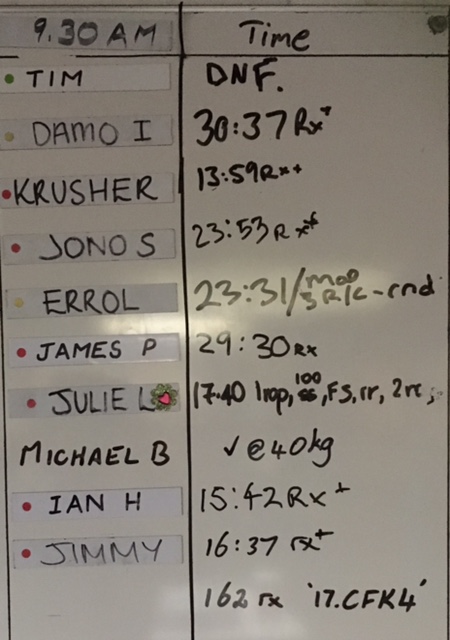 9.30 AM Time
TIM DNF.
DAMO I 30:37 Rx+
KRUSHER 13:59 Rx+
JONO S 23:53 Rx+
ERROL 23:31/mod 3 R/C-rnd
JAMES P 29:30 RX
JULIE L 17.40 1rop, 100 ss, FS, rr, 2rc,
MICHAEL B ✓@40kg
IAN H 15:42 Rx+
JIMMY 16:37 rx+
162 rx '17.CFK4'